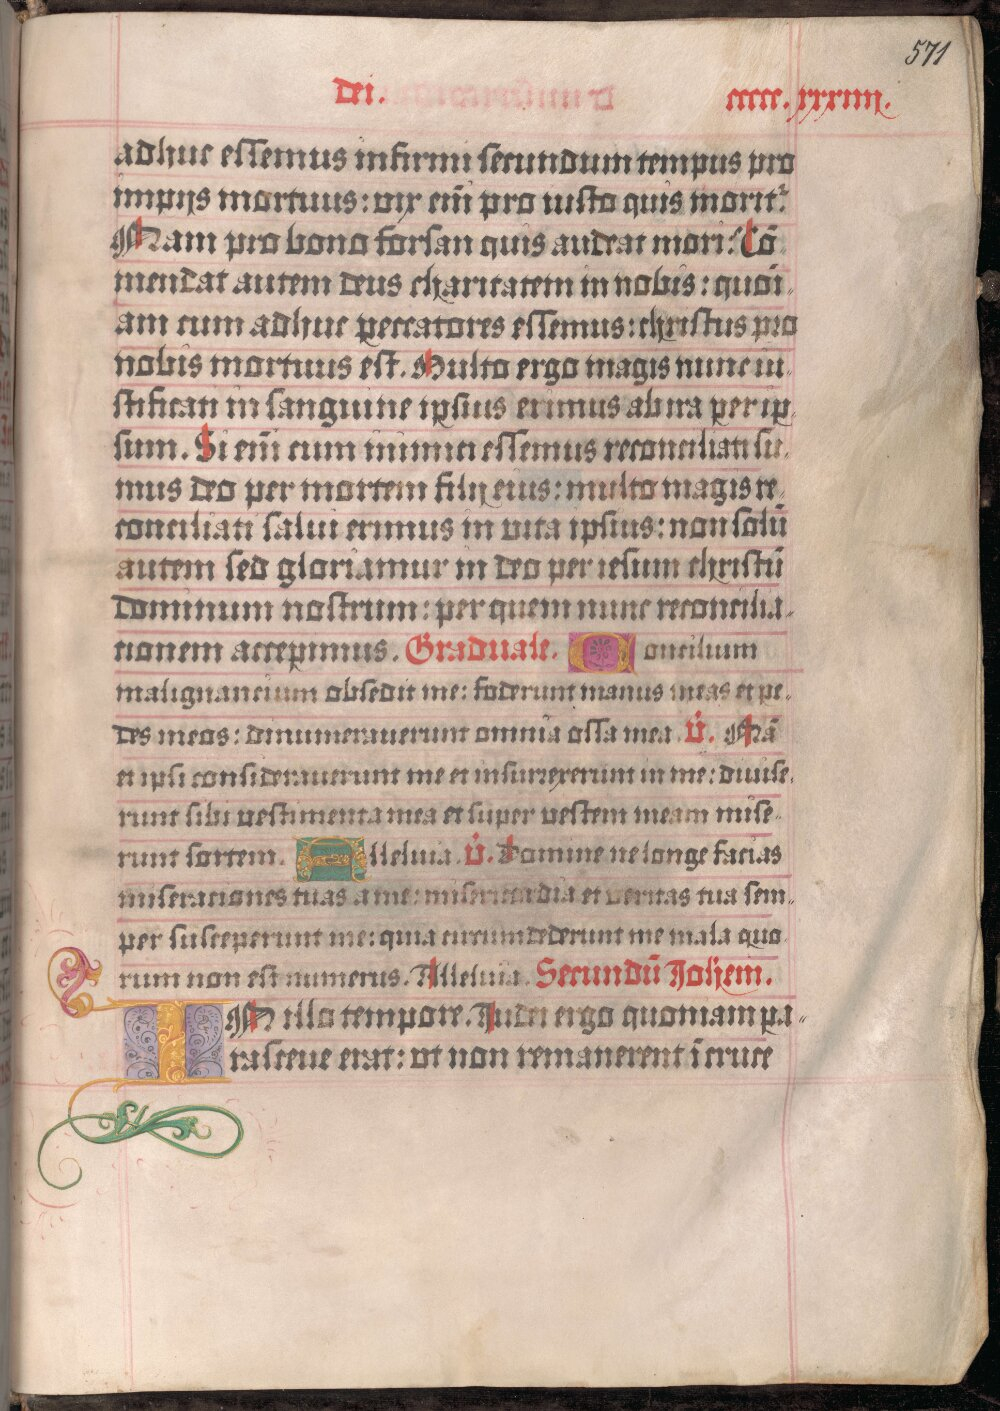 571
dei. ccccc.xxxiiii.
adhuc essemus infirmi secundum tempus pro
impijs mortuus: vix em̄ pro iusto quis morit᷑.
Nam pro bono forsan quis audeat mori. Cō
mendat autem deus charitatem in nobis: quoī-
am cum adhuc peccatores essemus: christus pro
nobis mortuus est. Multo ergo magis nunc iu-
stificati in sanguine ipsius erimus ab ira per ip-
sum. Si em̄ cum inimici essemus reconciliati su-
mus deo per mortem filij eius: multo magis re-
conciliati salui erimus in vita ipsius: non solū
autem sed gloriamur in deo per iesum christū
dominum nostrum: per quem nunc reconcilia-
tionem accepimus. Graduale. Concilium
malignancium obsedit me: foderunt manus meas et pe-
des meos: dinumerauerunt omnia ossa mea. V̇. Nā
et ipsi considerauerunt me et insurrexerunt in me: diuise-
runt sibi uestimenta mea et super uestem meam mise-
runt sortem. Alleluia. V̇. Domine ne longe facias
miseraciones tuas a me: misericordia et veritas tua sem-
per susceperunt me: quia circumdederunt me mala quo-
rum non est numerus. Alleluia. Secundū Johem.
IN illo tempore. Judei ergo quoniam pa-
rasceue erat: vt non remanerent ī cruce